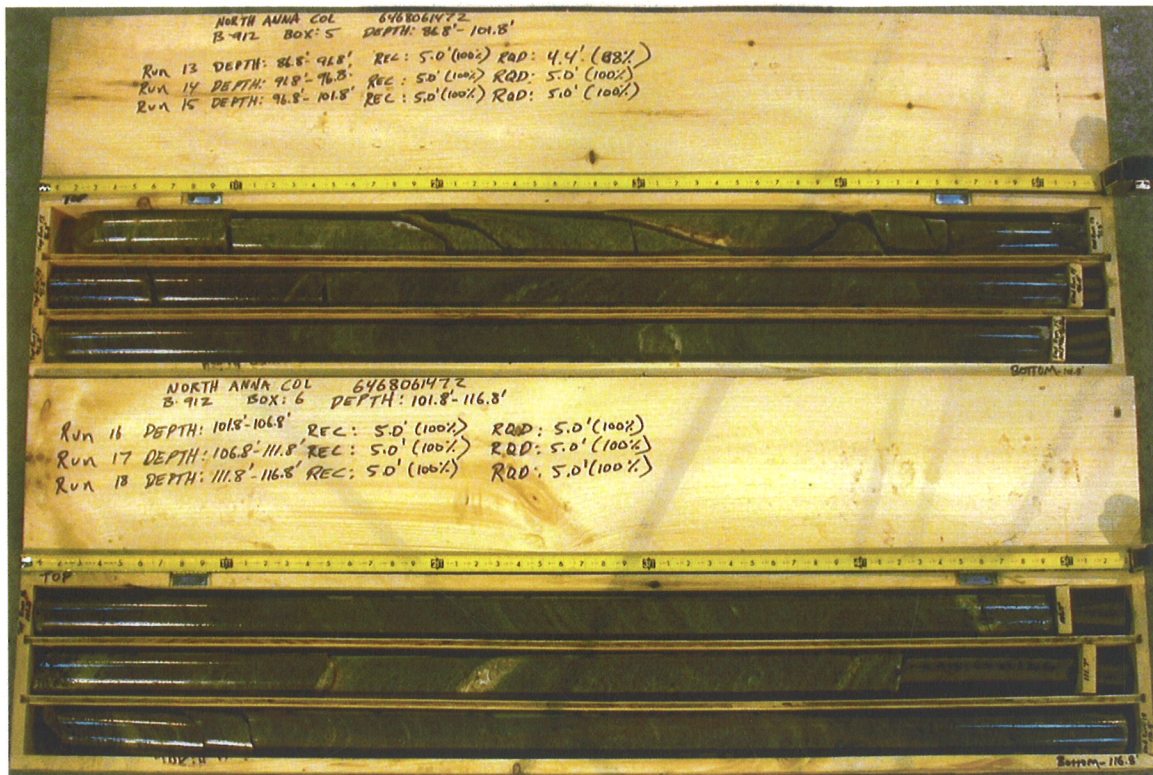 NORTH ANNA COL 6468061472
B-912 BOX: 5 DEPTH: 86.8'-101.8'
Run 13 DEPTH: 86.8'-91.8' REC: 5.0'(100%) RQD: 4.4' (88%)
Run 14 DEPTH: 91.8'-96.8' REC: 5.0'(100%) RQD: 5.0' (100%)
Run 15 DEPTH: 96.8'-101.8' REC: 5.0'(100%) RQD: 5.0' (100%)
TOP
BOTTOM-101.8'
NORTH ANNA COL 6468061472
B-912 BOX: 6 DEPTH: 101.8'-116.8'
Run 16 DEPTH: 101.8'-106.8' REC: 5.0' (100%) RQD: 5.0' (100%)
Run 17 DEPTH: 106.8'-111.8' REC: 5.0' (100%) RQD: 5.0' (100%)
Run 18 DEPTH: 111.8'-116.8' REC: 5.0' (100%) RQD: 5.0' (100%)
TOP
Bottom-116.8'